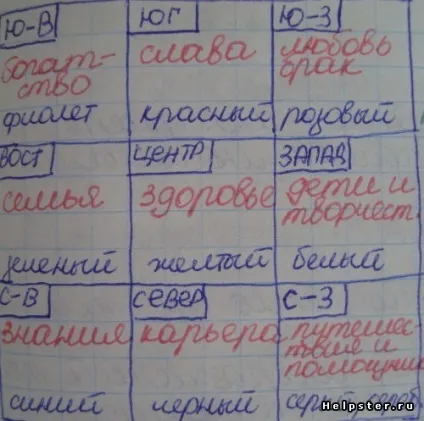 Ю-В ЮГ Ю-З
богат- слава любовь
ство брак
фиолет красный розовый
ВОСТ ЦЕНТР ЗАПАД
семья здоровье дети и
творчест.
зеленый желтый белый
С-В СЕВЕР С-З
знания карьера путешес-
твия и
помощник
синий черный серый, сереб
Helpster.ru